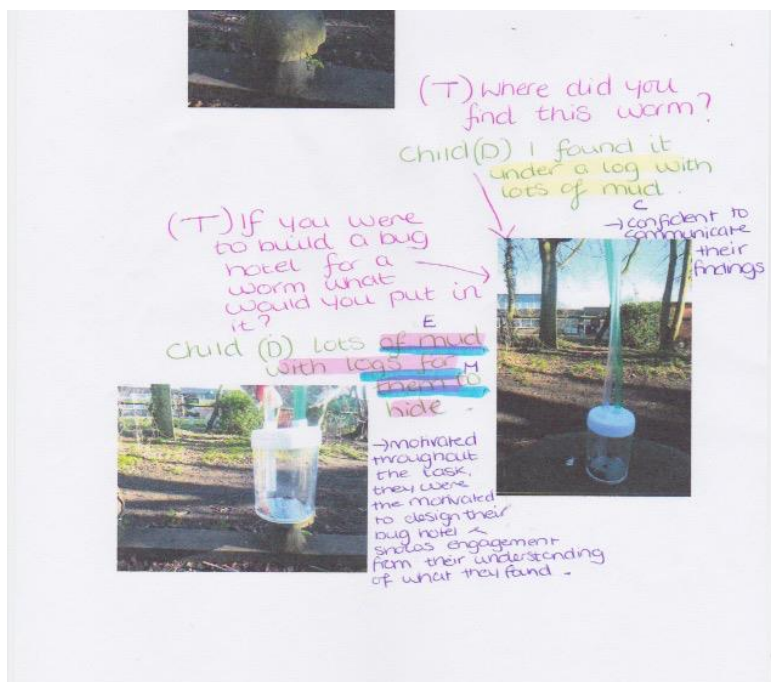 (T) Where did you
find this worm?
Child (D) I found it
under a log with
lots of mud.
C
→ confident to
communicate
their
findings
(T) If you were
to build a bug
hotel for a
worm what
would you put in
it?
E
Child (D) lots of mud
with logs for M
them to
hide.
→ motivated
throughout
the task,
they were
the motivated
to design their
bug hotel &
shows engagement
from their understanding
of what they found.